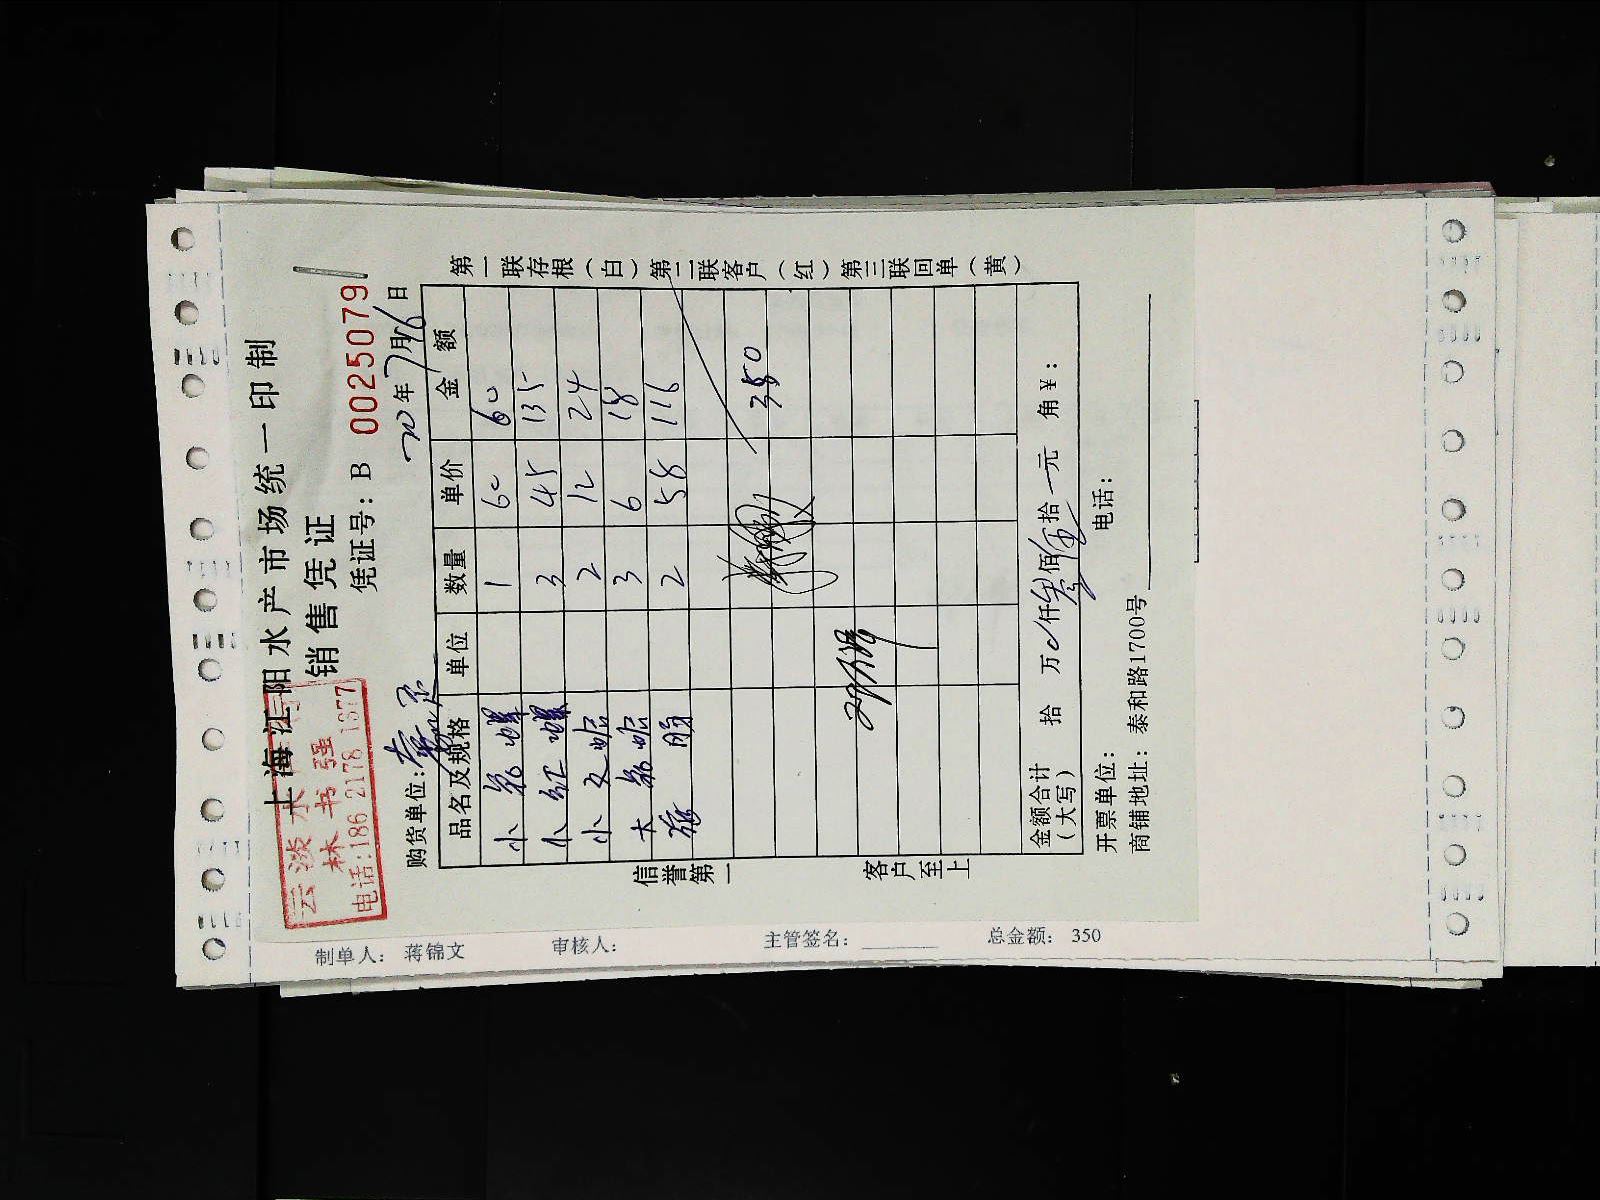 上海江阳水产市场统一印制
销售凭证
凭证号：B 0025079
云淡水
林书强
电话:186 2178 1877
购货单位:
20年7月16日
品名及规格 单位 数量 单价 金额
小 螺 1 60 60
小红螺 3 45 135
小文蛤 2 12 24
大 蛤 3 6 18
2 58 116
350
金额合计（大写） 拾 万 仟叁佰伍拾一元 角￥：
开票单位： 电话：
商铺地址：泰和路1700号
第一联存根（白）第二联客户（红）第三联回单（黄）
信誉第一
客户至上
制单人： 蒋锦文 审核人： 主管签名： 总金额： 350